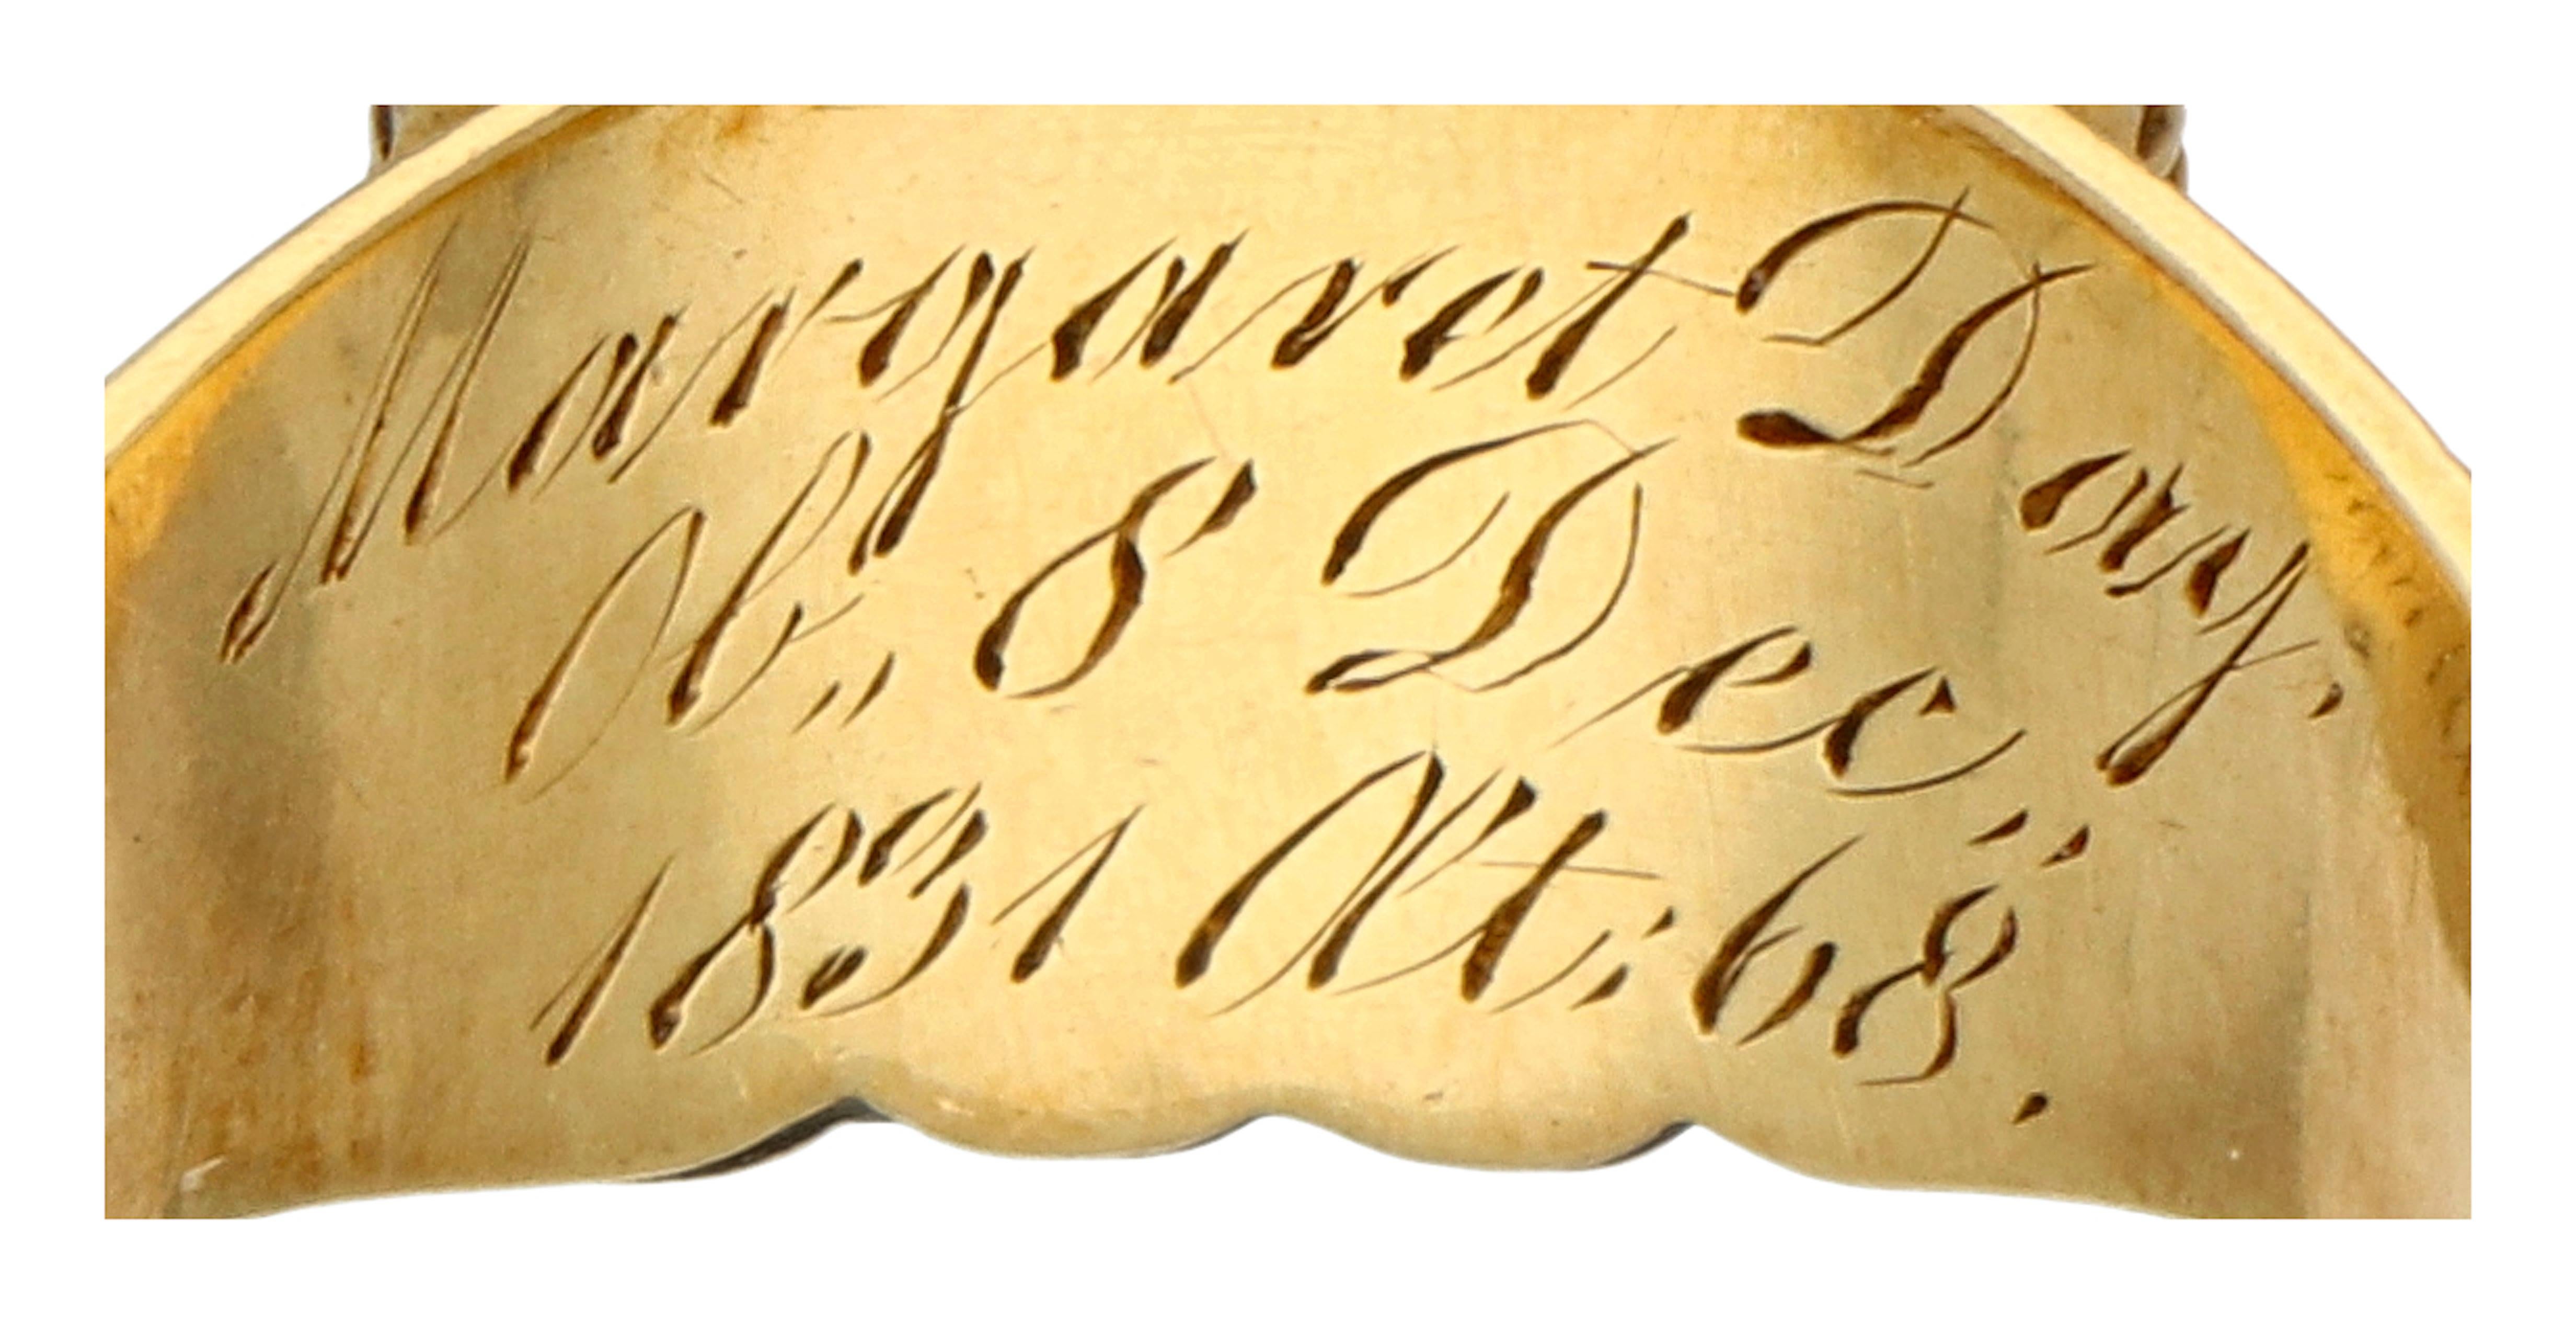 Margaret Day.
Ob,, 8 Dec,,
1831 Æt: 68.